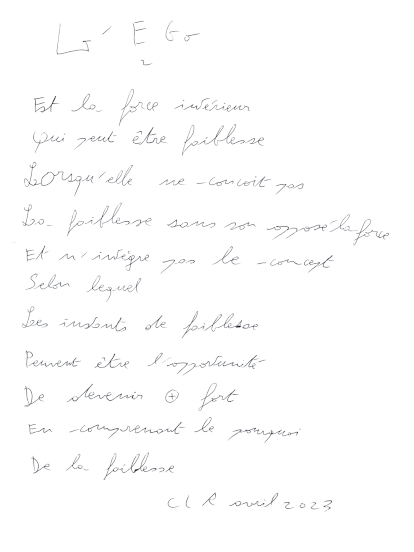 L'EGo
2
Est la force intérieur
Qui peut être faiblesse
Lorsqu'elle ne conçoit pas
La faiblesse sans son opposé la force
Et n'intègre pas le concept
Selon lequel
Les instants de faiblesse
Peuvent être l'opportunité
De devenir ⊕ fort
En comprenant le pourquoi
De la faiblesse
CLR avril 2023